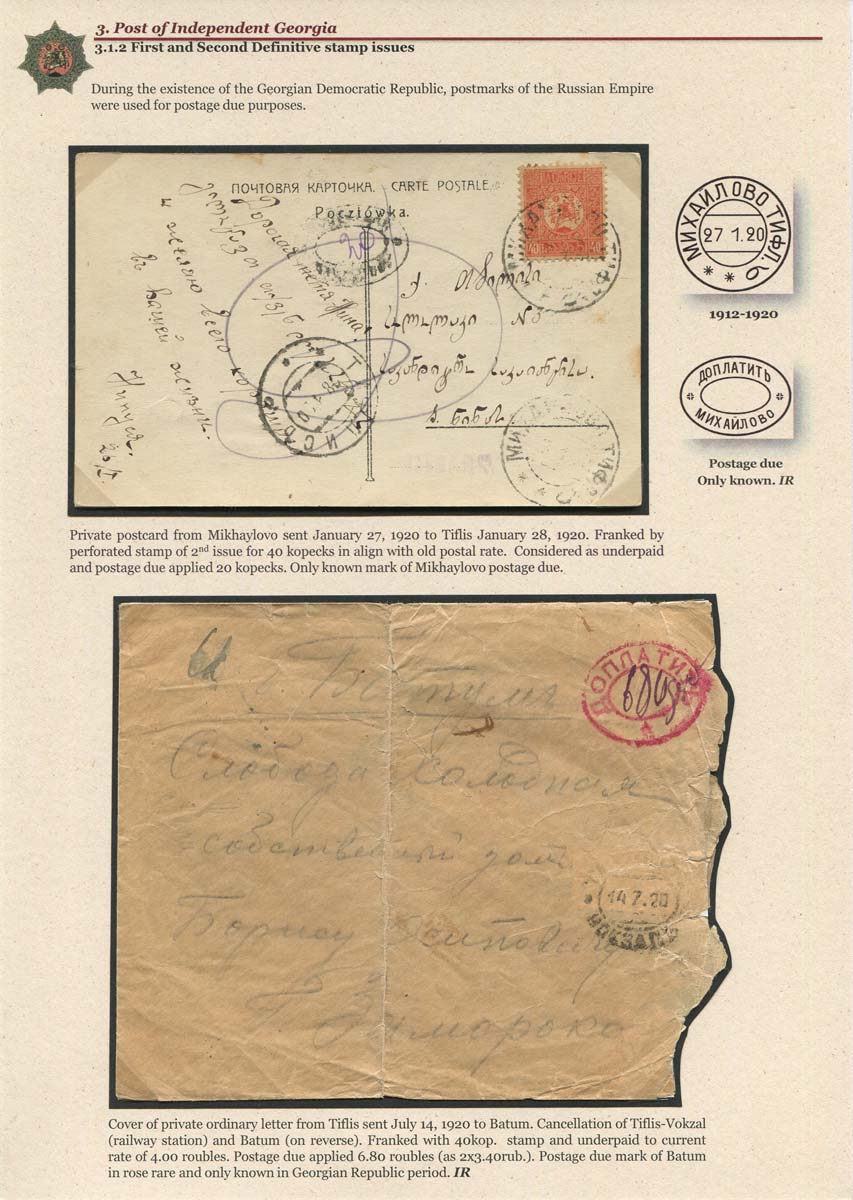 3. Post of Independent Georgia
3.1.2 First and Second Definitive stamp issues
During the existence of the Georgian Democratic Republic, postmarks of the Russian Empire
were used for postage due purposes.
ПОЧТОВАЯ КАРТОЧКА. CARTE POSTALE.
Pocztówka.
20
40 40
Дорогая
и желаю Всего
въ Вашей жизни.
Нинуся.
МИХАЙЛОВО ТИФ
МИХАЙЛОВО ТИФЛ. б
27 1.20
1912-1920
ДОПЛАТИТЬ
МИХАЙЛОВО
Postage due
Only known. IR
Private postcard from Mikhaylovo sent January 27, 1920 to Tiflis January 28, 1920. Franked by
perforated stamp of 2nd issue for 40 kopecks in align with old postal rate. Considered as underpaid
and postage due applied 20 kopecks. Only known mark of Mikhaylovo postage due.
г. Батумъ
Слобода Холодная
собственный домъ
Борису Осиповичу
ДОПЛАТИТЬ
680
14 7.20
ВОКЗАЛЪ
Cover of private ordinary letter from Tiflis sent July 14, 1920 to Batum. Cancellation of Tiflis-Vokzal
(railway station) and Batum (on reverse). Franked with 40kop. stamp and underpaid to current
rate of 4.00 roubles. Postage due applied 6.80 roubles (as 2x3.40rub.). Postage due mark of Batum
in rose rare and only known in Georgian Republic period. IR